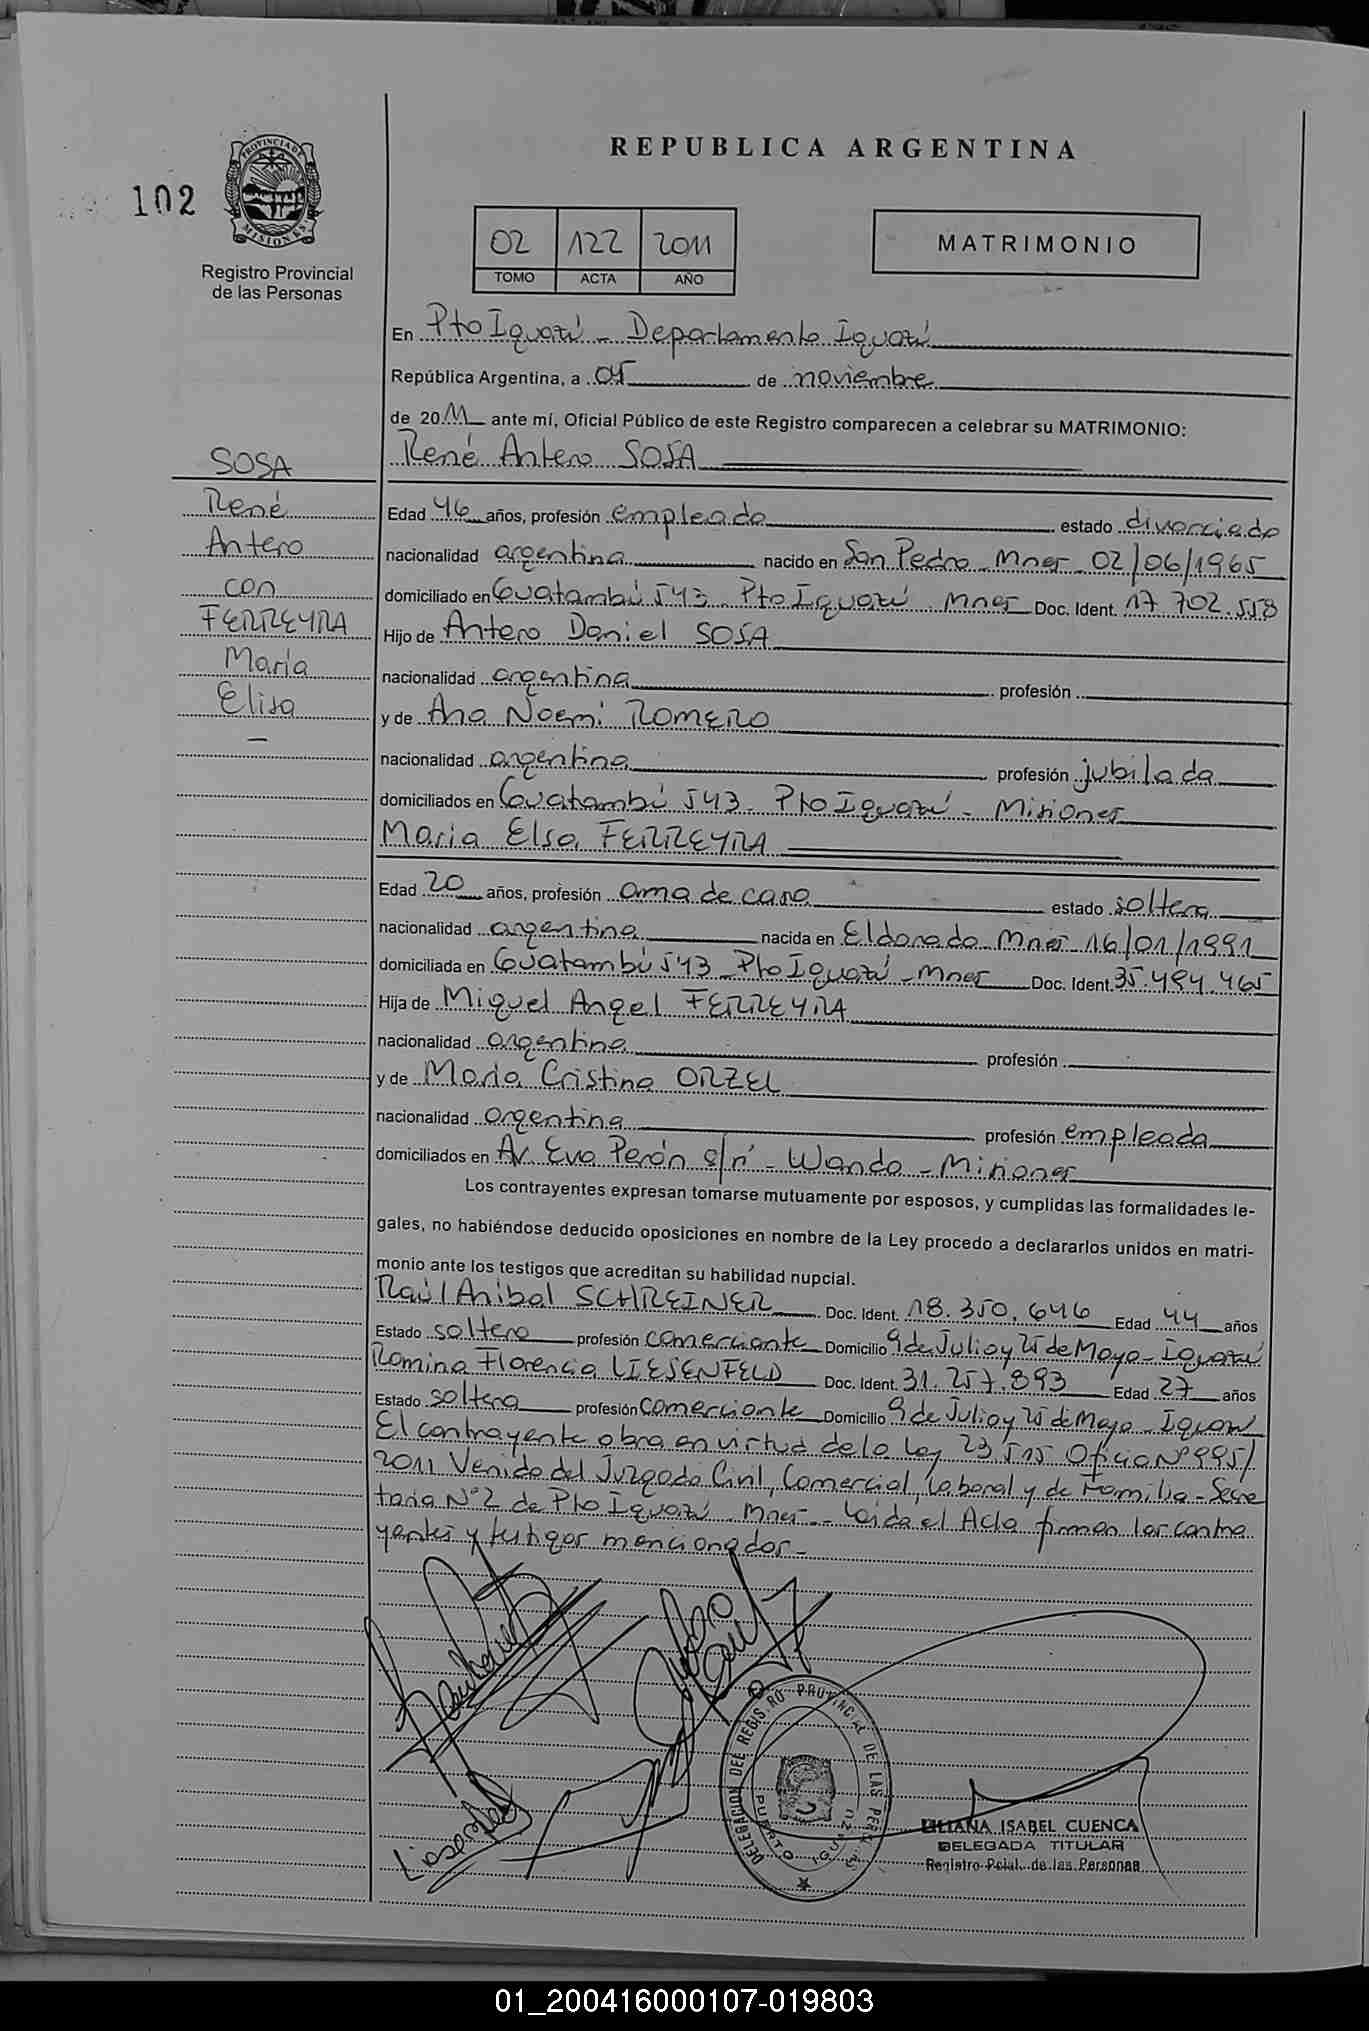 REPUBLICA ARGENTINA
102
PROVINCIA DE MISIONES
Registro Provincial
de las Personas
02 122 2011
TOMO ACTA AÑO
MATRIMONIO
En Pto Iguazú - Departamento Iguazú
República Argentina, a 05 de noviembre
de 2011 ante mí, Oficial Público de este Registro comparecen a celebrar su MATRIMONIO:
René Antero SOSA
SOSA
René
Antero
con
FERREYRA
Maria
Elisa
Edad 46 años, profesión empleado estado divorciado
nacionalidad argentina nacido en San Pedro - Mnes - 02/06/1965
domiciliado en Guatambú 543 - Pto Iguazú - Mnes Doc. Ident. 17.702.558
Hijo de Antero Daniel SOSA
nacionalidad argentina profesión
y de Ana Noemi ROMERO
nacionalidad argentina profesión jubilada
domiciliados en Guatambú 543 - Pto Iguazú - Misiones
Maria Elsa FERREYRA
Edad 20 años, profesión ama de casa estado soltera
nacionalidad argentina nacida en Eldorado Mnes 16/01/1991
domiciliada en Guatambú 543 - Pto Iguazú - Mnes Doc. Ident. 35.494.465
Hija de Miguel Angel FERREYRA
nacionalidad argentina profesión
y de Maria Cristina ORZEL
nacionalidad argentina profesión empleada
domiciliados en Av. Eva Perón s/n - Wanda - Misiones
Los contrayentes expresan tomarse mutuamente por esposos, y cumplidas las formalidades le-
gales, no habiéndose deducido oposiciones en nombre de la Ley procedo a declararlos unidos en matri-
monio ante los testigos que acreditan su habilidad nupcial.
Raúl Anibal SCHREINER Doc. Ident. 18.350.646 Edad 44 años
Estado soltero profesión comerciante Domicilio 9 de Julio y 25 de Mayo - Iguazú
Romina Florencia LIESENFELD Doc. Ident. 31.257.893 Edad 27 años
Estado soltera profesión comerciante Domicilio 9 de Julio y 25 de Mayo - Iguazú
El contrayente obra en virtud de la Ley 23.515 Oficio Nº 995/
2011 Venido del Juzgado Civil, Comercial, Laboral y de Familia - Secre
taria Nº 2 de Pto Iguazú - Mnes - Leida el Acta firman los contra
yentes y testigos mencionados -
DELEGACION DEL REGISTRO PROVINCIAL DE LAS PERS.
PUERTO IGUAZU
LILIANA ISABEL CUENCA
DELEGADA TITULAR
Registro Pcial. de las Personas
01_200416000107-019803